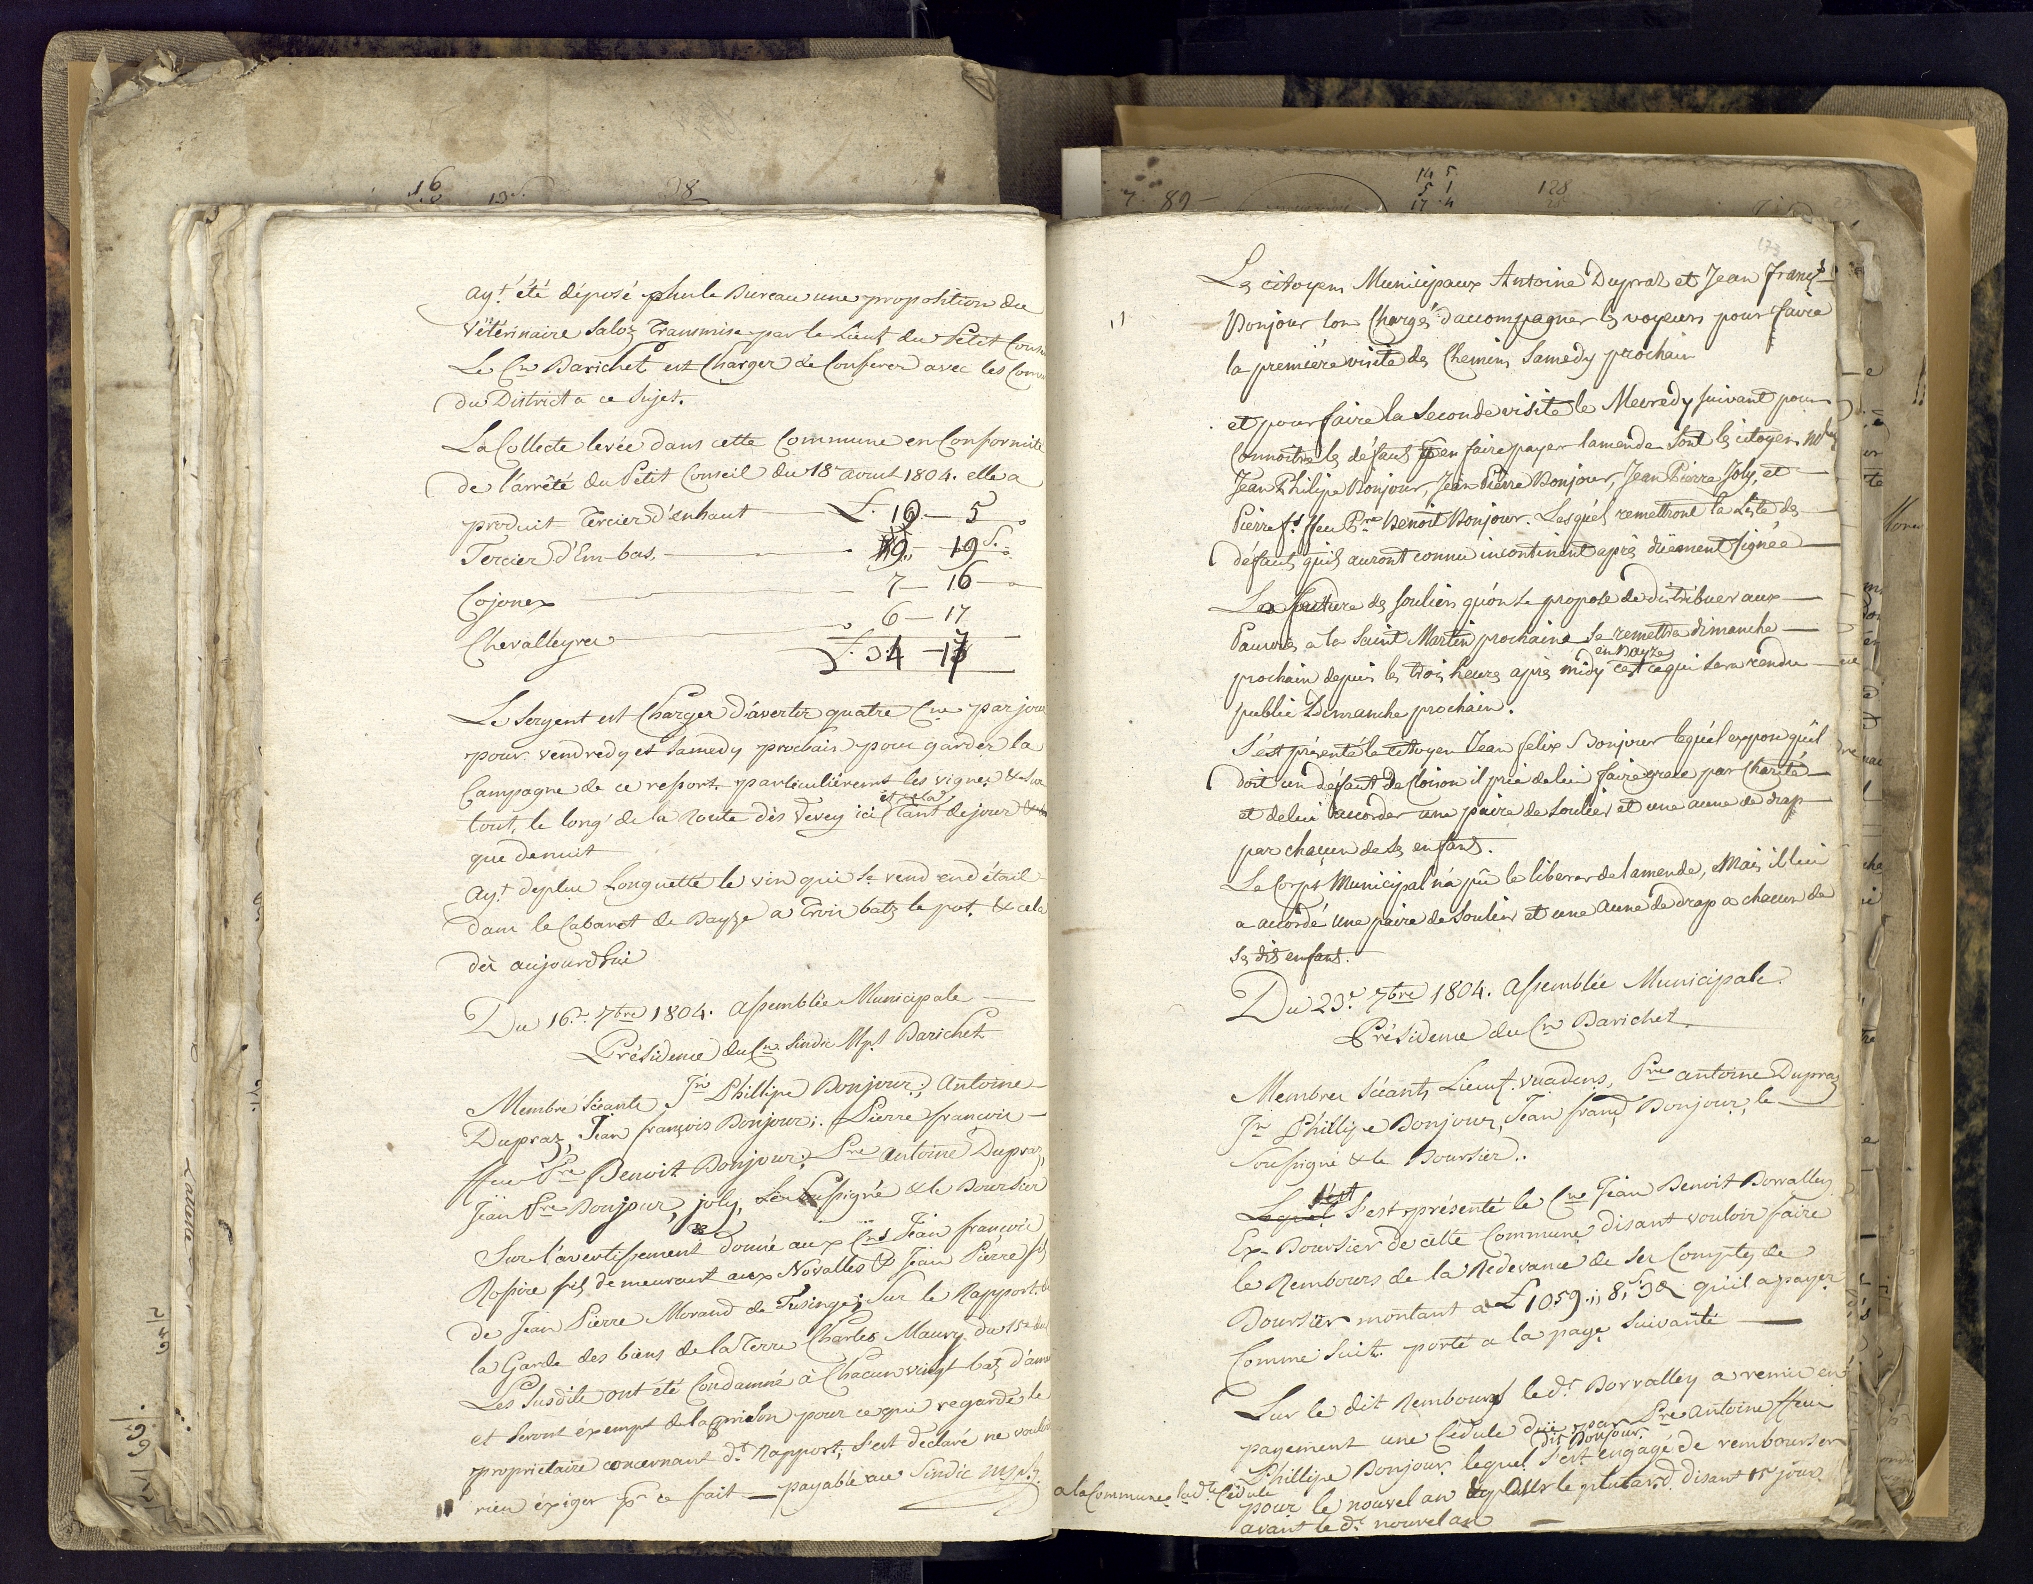 ayt. été déposé sur le Bureau une proposition du
Vétérinaire Saloz Transmise par le Lieut du Petit Cons
Le Cn Barichet est Charger de Conferer avec les Comm
du District a ce Sujet.
La Collecte levée dans cette Commune en Conformité
de l'arrêté du Petit Conseil du 18e aout 1804. elle a
produit Tercier d'enhaut — L. 19 — 5
Tercier d'Em-bas, — 19 S.
Cojonex — 7 — 16
Chevalleyrex — 6 — 17
L. 34 — 17
Le Sergent est Charger d'avertir quatre Cns par jour
pour vendredy et Samedy prochain pour garder la
Campagne de ce ressort, particulièremt les vignes & sur
tout, le long de la Route dès Vevey ici et cela tant de jour
que de nuit
ayt. de plus Longuetté le vin qui se vend en détail
dans le Cabaret de Bayze a trois batz le pot, & cela
dès aujourd'hui
Du 16e. 7bre 1804. assemblée Municipale
Présidence du Cn. Sindic Mpl Barichet
Membre Scéants Jn Phillipe Bonjour; Antoine
Dupraz, Jean françois Bonjour; Pierre françois
ffeu Pre Benoit Bonjour; Pre antoine Dupraz,
Jean Pre Bonjour, joly, Le Sussigné & le Boursier
Sur l'avertissement donné aux Cns Jean françois
Rossire fils demeurant aux Novalles & Jean Pierre fils
de Jean Pierre Morand de Tusinge; Sur le Rapport de
la Garde des biens de la Terre Charles Maury du 15e
Les Susdits ont été Condamné à Chacun vingt batz d'am
et Seront éxempt de la prison pour ce qui regarde le
propriétaire concernant dt. Rapport, s'est declaré ne vouloir
rien éxiger pr ce fait — payable au Sindic
173
Les citoyens Municipaux Antoine Dupraz et Jean Franç.
Bonjour Son Chargés d'accompagner les voyeurs pour faire
la première visite des Chemins Samedy prochain
et pour faire la Seconde visite le Mecredy suivant pour
Connoitre les défauts & en faire payer lamende Sont les citoyens
Jean Philipe Bonjour, Jean Pierre Bonjour, Jean Pierre Joly, et
Pierre fs. ffeu Pre Benoit Bonjour. Lesquels remettront la Liste des
défauts quils auront connu incontinent après düement signée
La facture des souliers qu'on se propose de distribuer aux
Pauvres a la Saint Martin prochaine se remettra dimanche
prochain depuis les trois heures après midy en Bayze c'est ce qui sera rendu
public Dimanche prochain.
S'est présenté le citoyen Jean felix Bonjour lequel expose qu'il
doit un défaut de Cloison il prie de lui faire grace par Charité
et de lui accorder une paire de Soulier et une aune de drap
par chacun de ses enfants.
Le Corps Municipal n'a pû le liberer de lamende, Mais il lui
a accordé une paire de Souliers et une aune de drap a chacun de
ses dits enfans.
Du 23e. 7bre 1804. Assemblée Municipale.
Présidence du Cn Barichet
Membres Scéants, Lieut. vuadens, Pre antoine Dupraz
Jn Phillipe Bonjour, Jean franç Bonjour, le
Soussigné & le Boursier.
S'est présenté le Cn Jean Benoit Borralley
Ex-Boursier de cette Commune disant vouloir faire
le Rembours de la Redevance de ses Comptes de
Boursier montant a L 1059 " 8 S. qu'il a payer
Comme Suit. porté a la page Suivante
Sur le dit Rembours le dt. Borralley a remis en
payement une Cédule düe par Pre antoine ffeu
Phillipe Bonjour dit Bonjour lequel s'est engagé de rembourser
a la Commune la dte Cédule
pour le nouvel an le plutard disant 15 jours
avant le dt. nouvel an